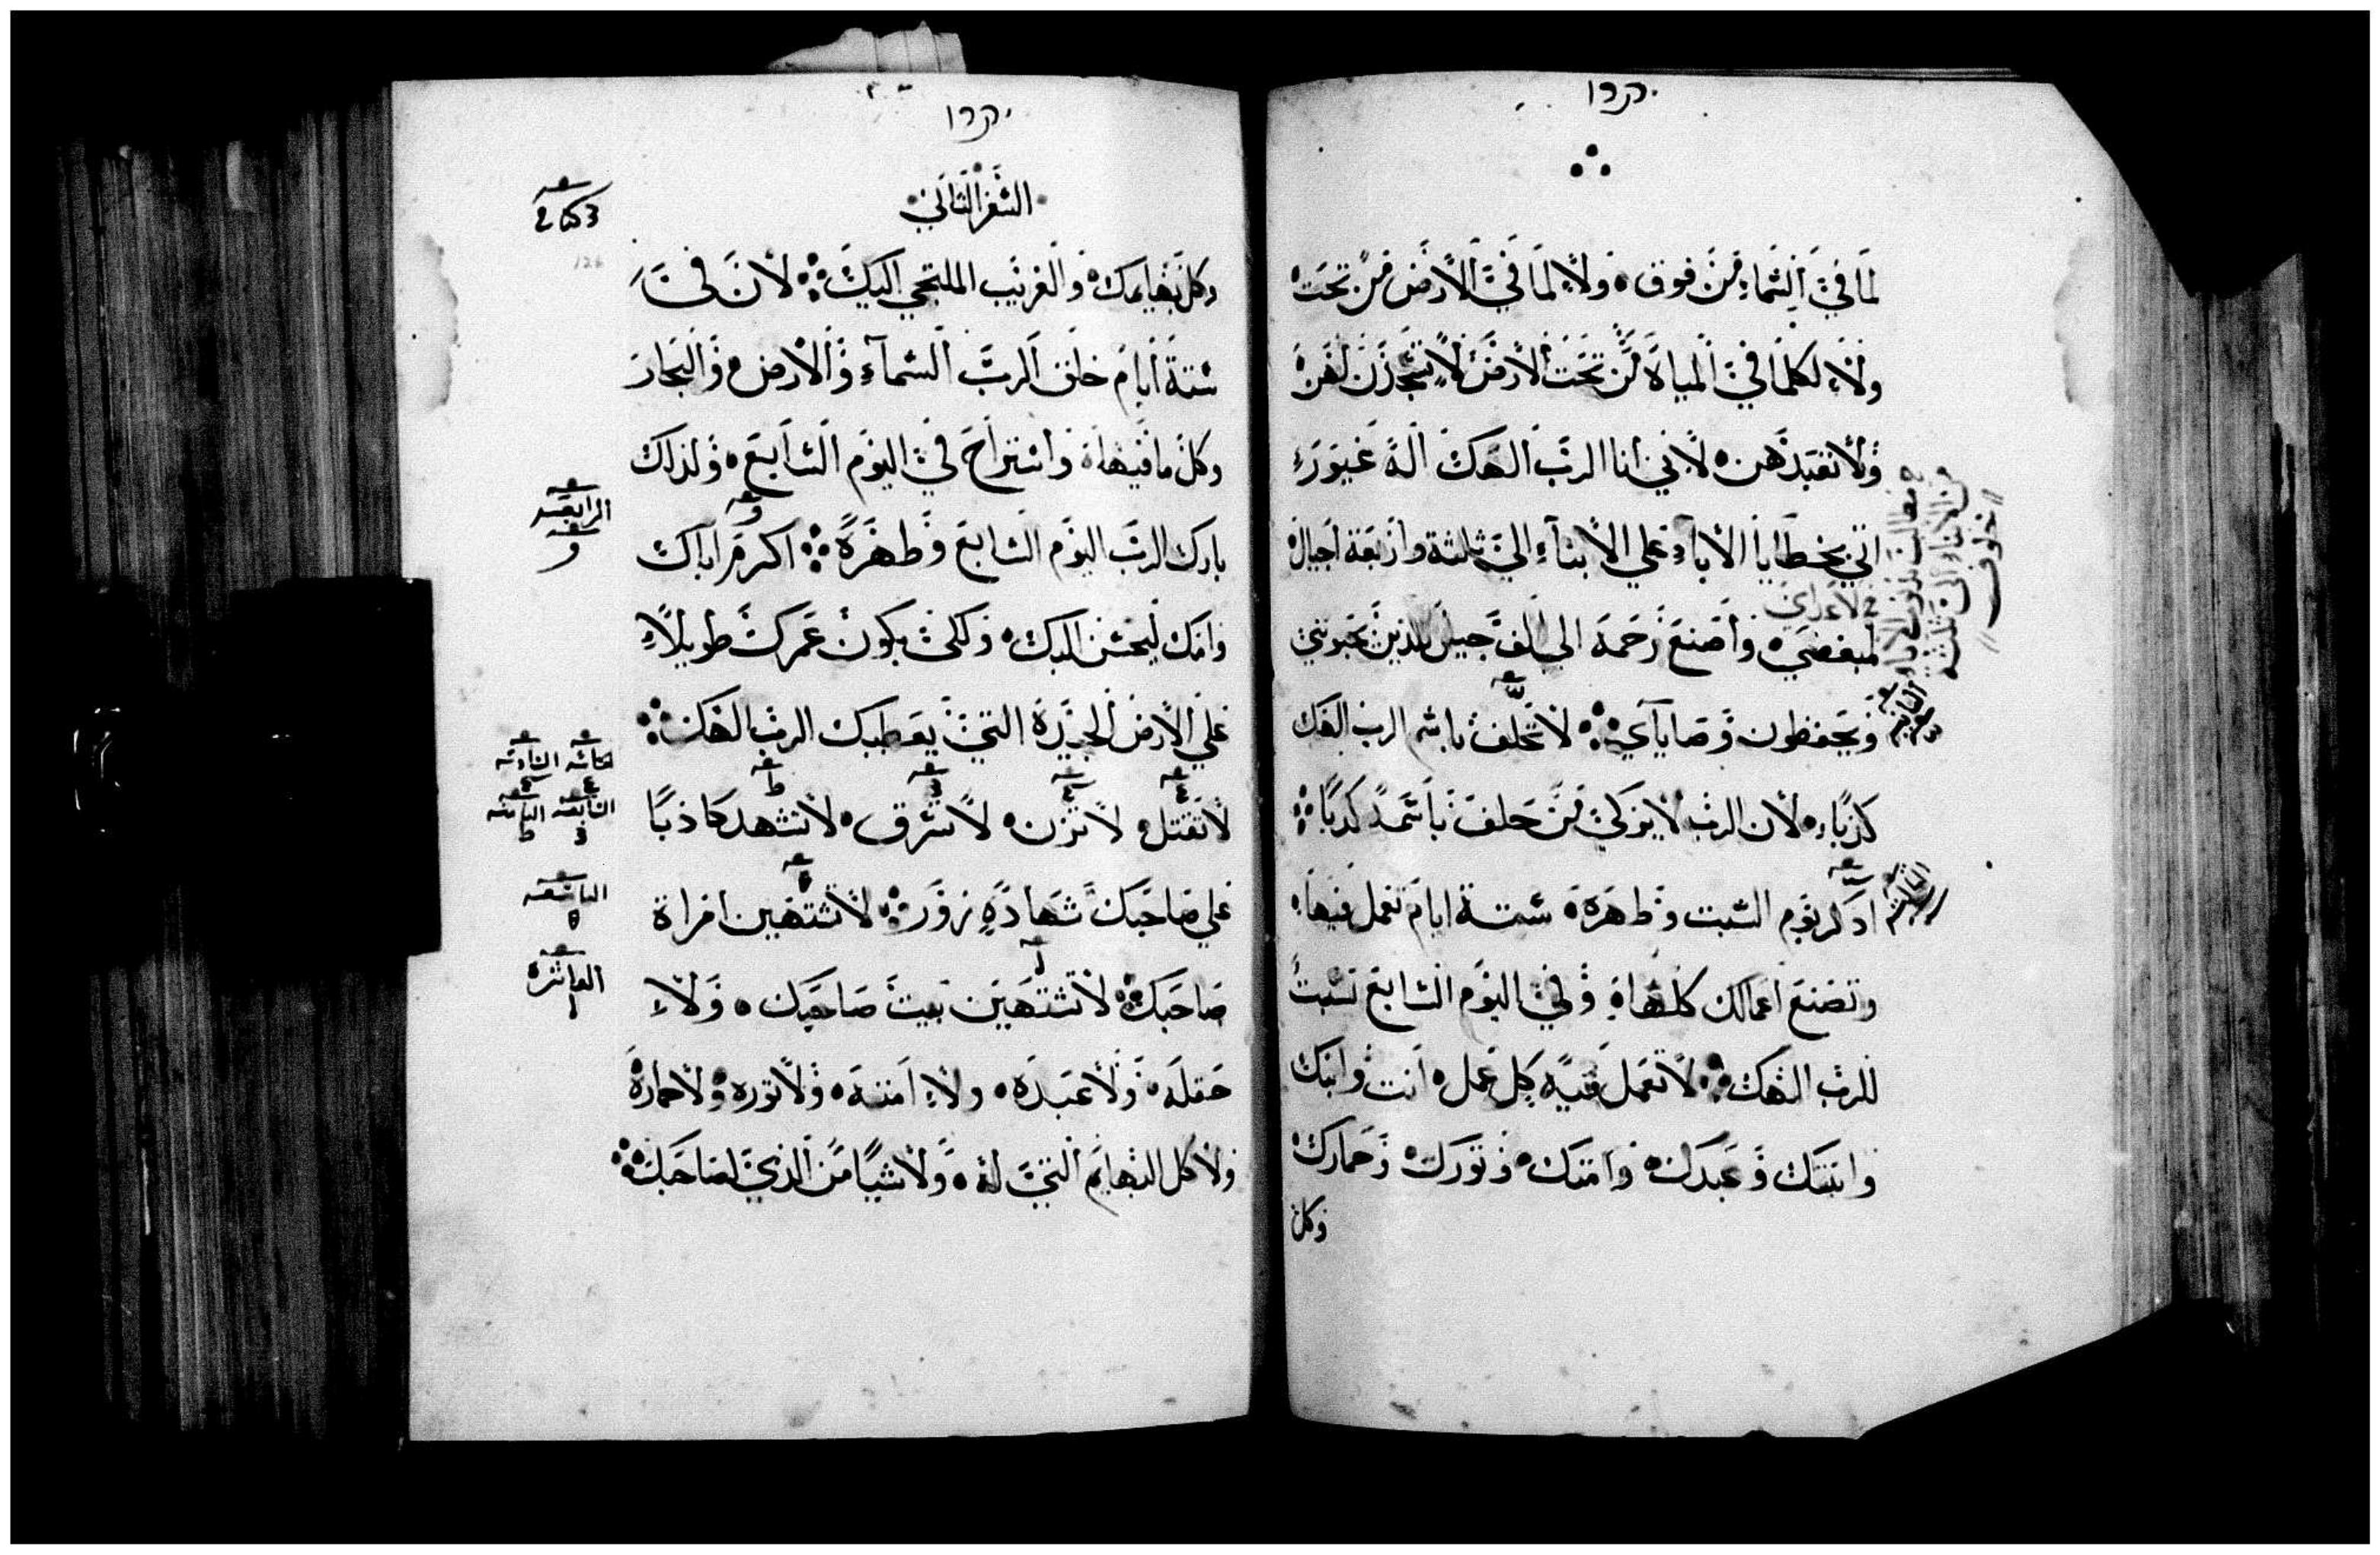 لما في السماء من فوق ولا لما في الارض من تحت
ولا لكلما في المياه من تحت الارض لا تسجدن لهن
ولا تعبدهن لانني انا الرب الهك اله غيور
اتي بخطايا الاباء علي الابناء الي ثلثة واربعة اجيال
لمبغضي واصنع رحمه الي الف جيل للذين يحبوني
ويحفظون وصاياي لا تحلف باسم الرب الهك
كذبا لان الرب لا يزكي من حلف باسمه كدبا
ادكر يوم السبت وطهره ستة ايام تعمل فيها
وتصنع اعمالك كلها وفي اليوم السابع سبت
للرب الهك لا تعمل فيه كل عمل انت وابنك
وابنتك وعبدك وامتك وتورك وحمارك
وكل
الثانيه
الثالثه
السفر الثاني
وكل بهايمك والغريب الملتجي اليك لان في
ستة ايام خلق الرب السماء والارض والبحار
وكل ما فيها واستراح في اليوم السابع ولذلك
بارك الرب اليوم السابع وطهره اكرم اباك
وامك ليحسن اليك ولكي يكون عمرك طويلا
علي الارض الجيدة التي يعطيك الرب الهك
لا تقتل لا تزن لا تسرق لا تشهد كاذبا
علي صاحبك شهادة زور لا تشتهين امراة
صاحبك لا تشتهين بيت صاحبك ولا
حقله ولا عبده ولا امته ولا توره ولا حماره
ولا كل البهايم التي له ولا شيا من الذي لصاحبك
الرابعه
و
الخامسه السادسه
السابعه الثامنه
التاسعه
العاشره
126